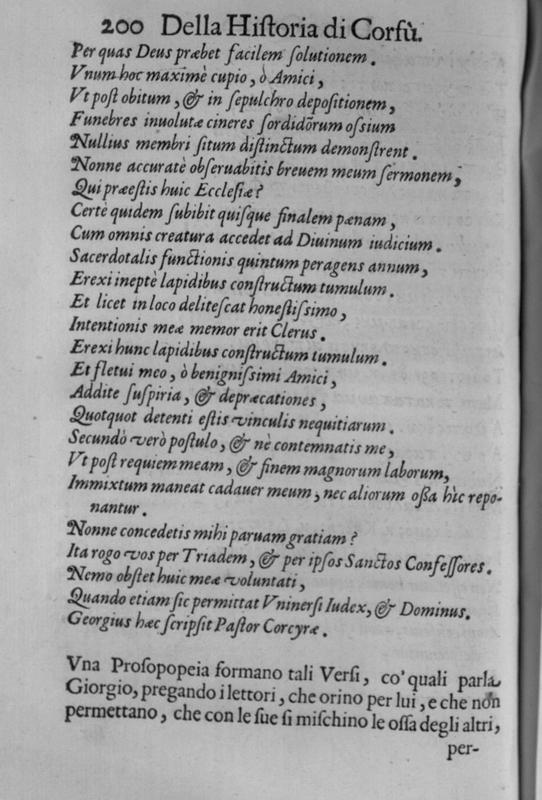 200 Della Hiſtoria di Corfù.
Per quas Deus præbet facilem ſolutionem.
Vnum hoc maximè cupio, ò Amici,
Vt poſt obitum, & in ſepulchro depoſitionem,
Funebres inuolutæ cineres ſordidõrum oſſium
Nullius membri ſitum diſtinctum demonſtrent.
Nonne accuratè obſeruabitis breuem meum ſermonem,
Qui præeſtis huic Eccleſiæ?
Certè quidem ſubibit quiſque finalem pænam,
Cum omnis creatura accedet ad Diuinum iudicium.
Sacerdotalis functionis quintum peragens annum,
Erexi ineptè lapidibus conſtructum tumulum.
Et licet in loco deliteſcat honeſtiſſimo,
Intentionis meæ memor erit Clerus.
Erexi hunc lapidibus conſtructum tumulum.
Et fletui meo, ò benigniſſimi Amici,
Addite ſuſpiria, & depræcationes,
Quotquot detenti eſtis vinculis nequitiarum.
Secundò verò poſtulo, & nè contemnatis me,
Vt poſt requiem meam, & finem magnorum laborum,
Immixtum maneat cadauer meum, nec aliorum oſſa hìc repo-
nantur.
Nonne concedetis mihi paruam gratiam?
Ita rogo vos per Triadem, & per ipſos Sanctos Confeſſores.
Nemo obſtet huic meæ voluntati,
Quando etiam ſic permittat Vninerſi Iudex, & Dominus.
Georgius hæc ſcripſit Paſtor Corcyræ.
Vna Proſopopeia formano tali Verſi, co' quali parla
Giorgio, pregando i lettori, che orino per lui, e che non
permettano, che con le ſue ſi miſchino le oſſa degli altri,
per-